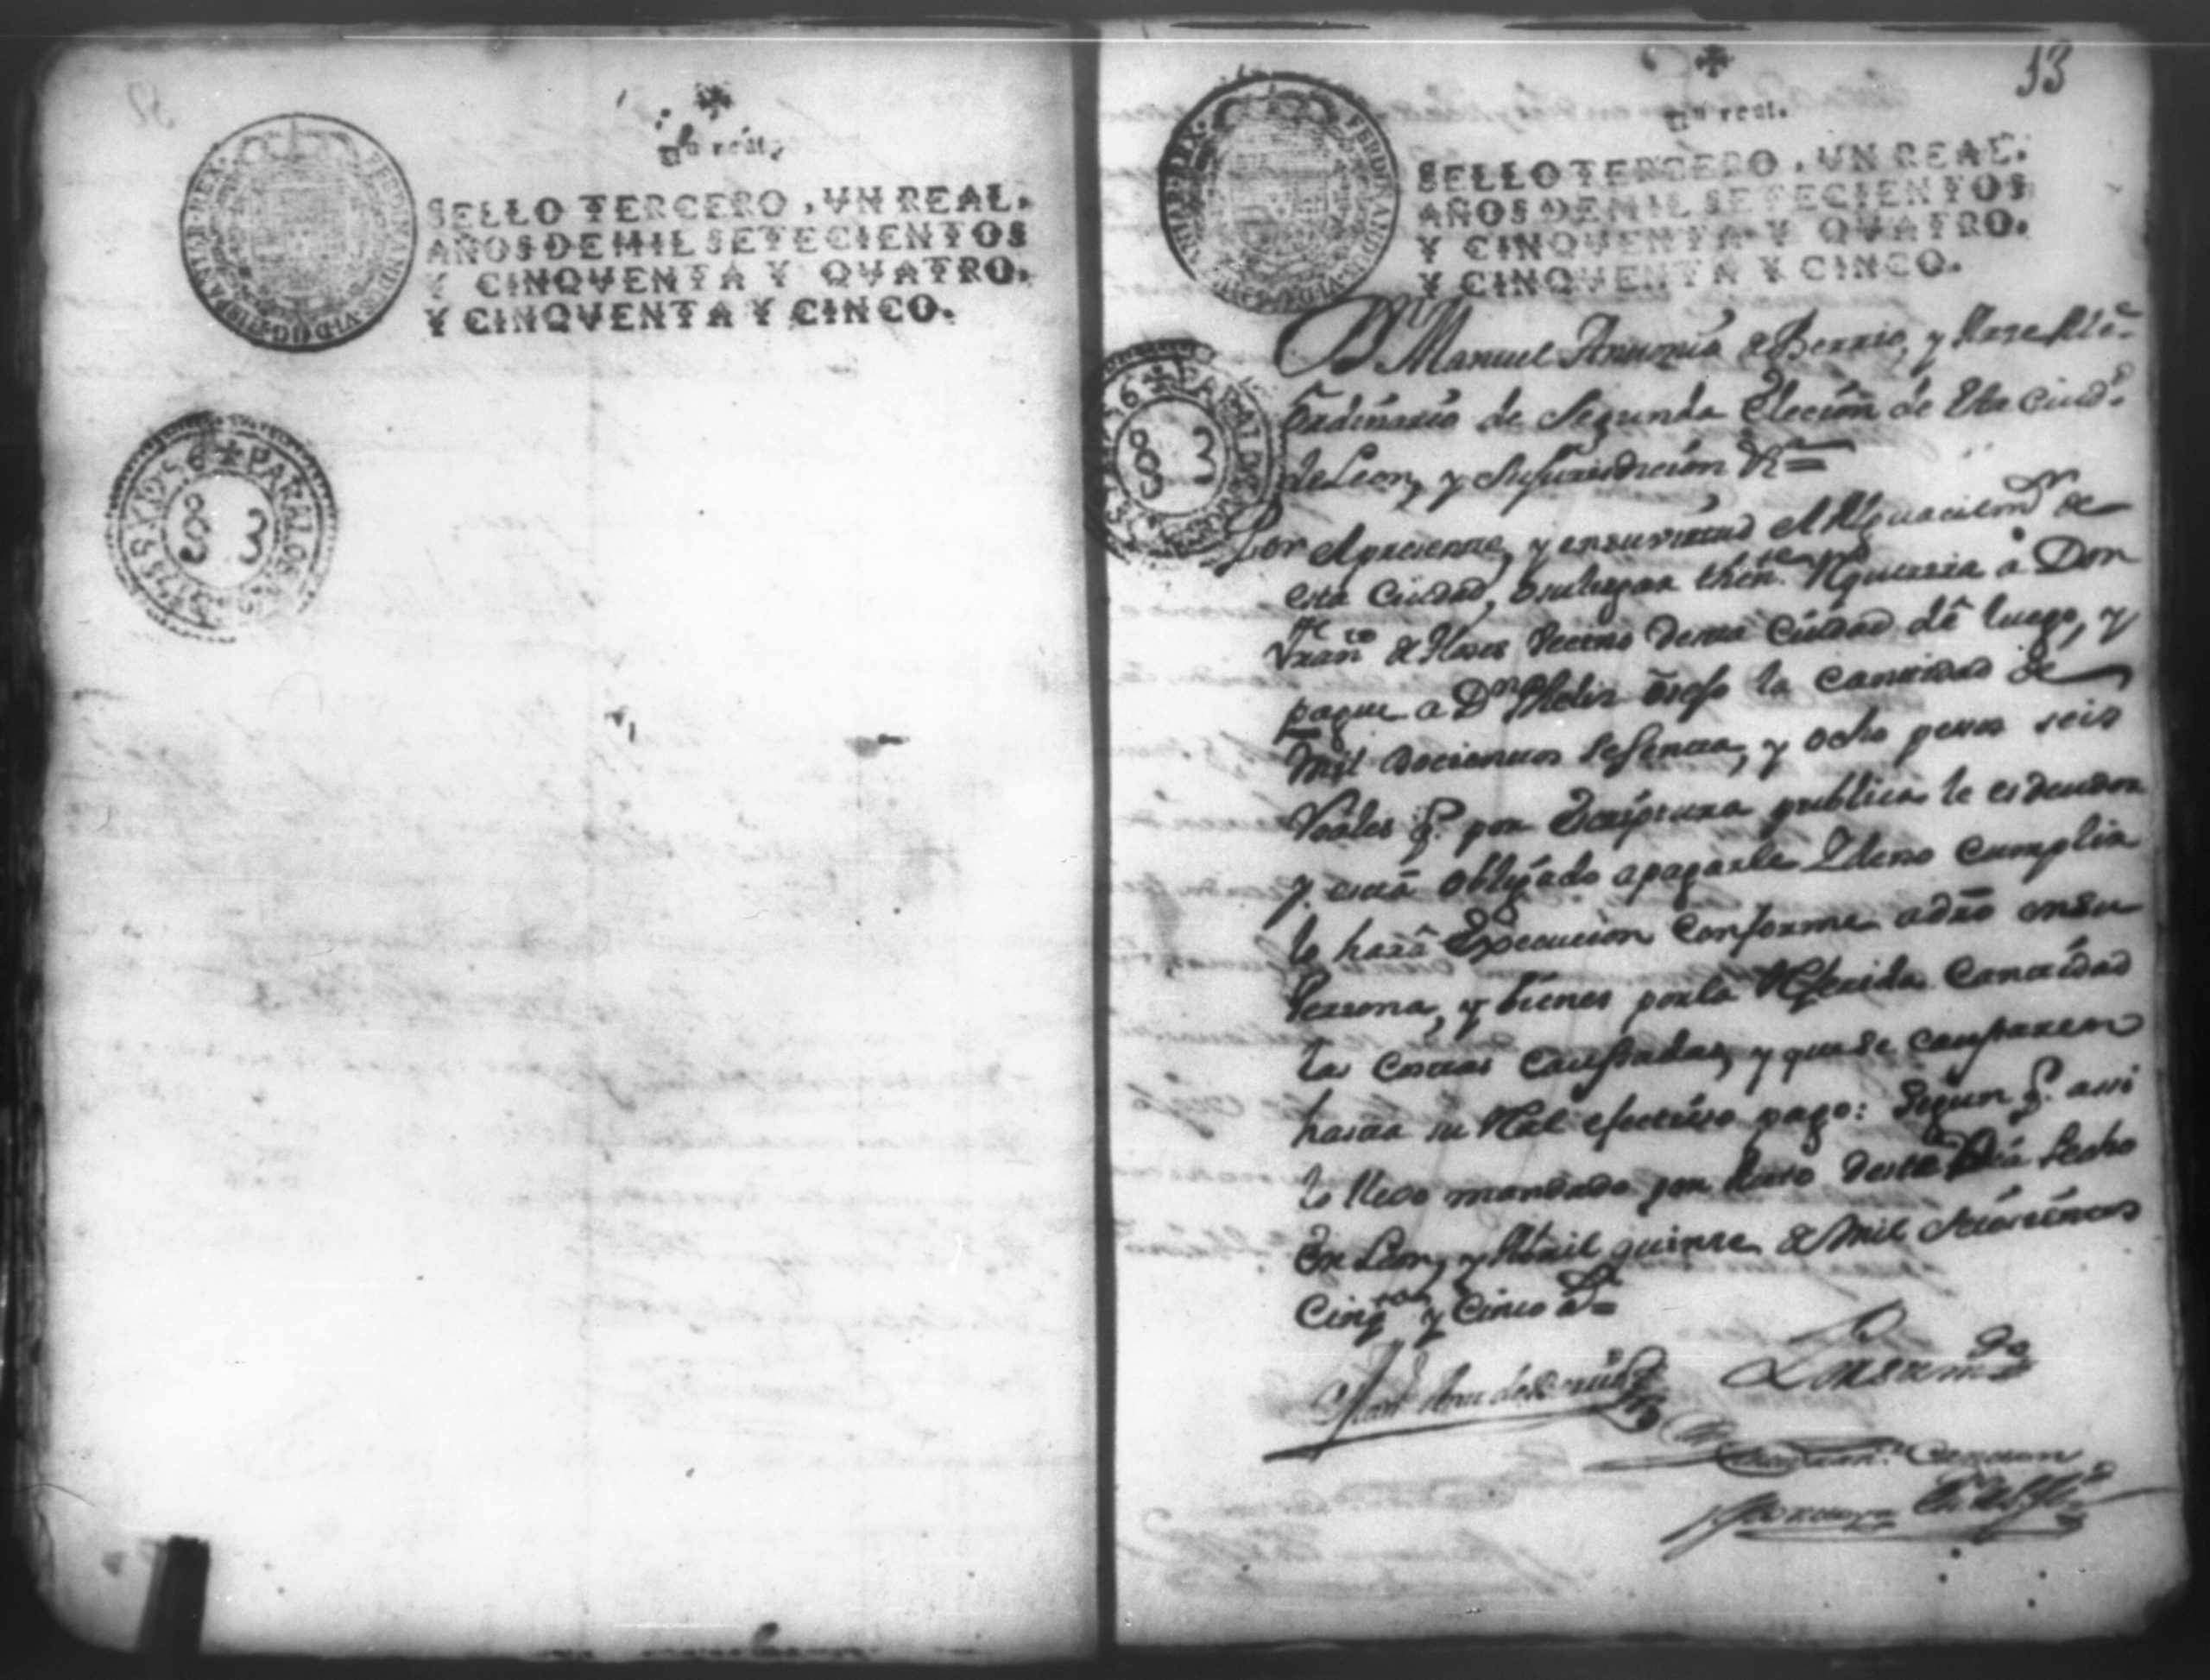 Un real.
SELLO TERCERO, VN REAL.
AÑOS DE MIL SETECIENTOS
Y CINQVENTA Y QVATRO.
Y CINQVENTA Y CINCO.
PARA LOS
3
33
Un real.
SELLO TERCERO, VN REAL.
AÑOS DE MIL SETECIENTOS
Y CINQVENTA Y QVATRO.
Y CINQVENTA Y CINCO.
3
Dn Manuel Antonio de Berrio, y
Ordinario de Segunda Elecion de Esta Ciud.d
de Leon, y su Jurisdicion &
Por el presente, y en su virtud el Alguacil mr de
esta Ciudad, o su lugar thente Requerira a Don
Franco de vecino desta Ciudad dê luego, y
pague a Dn Felix la cantidad de
Mil docientos sesenta, y ocho pesos seis
Reales q.e por Escriptura publica le es deudor
y está obligado a pagarle I de no cumplir
lo hará Execucion conforme a dro en su
Persona, y bienes por la Referida Cantidad
las costas causadas, y que se causaren
hasta su Real efectivo pago: Segun q.e assi
lo llevo mandado por Auto deste Dia fecho
En Leon, y Abril quinse de Mil Setesientos
Cinqta y Cinco as
Por su mdo